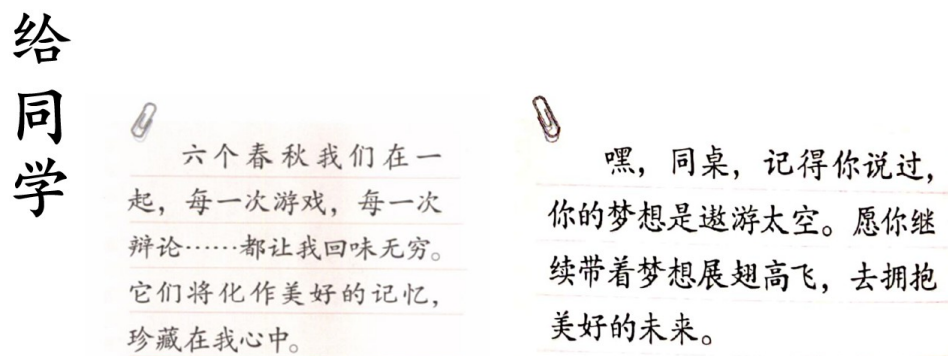 给同学
六个春秋我们在一
起，每一次游戏，每一次
辩论……都让我回味无穷。
它们将化作美好的记忆，
珍藏在我心中。
嘿，同桌，记得你说过，
你的梦想是遨游太空。愿你继
续带着梦想展翅高飞，去拥抱
美好的未来。